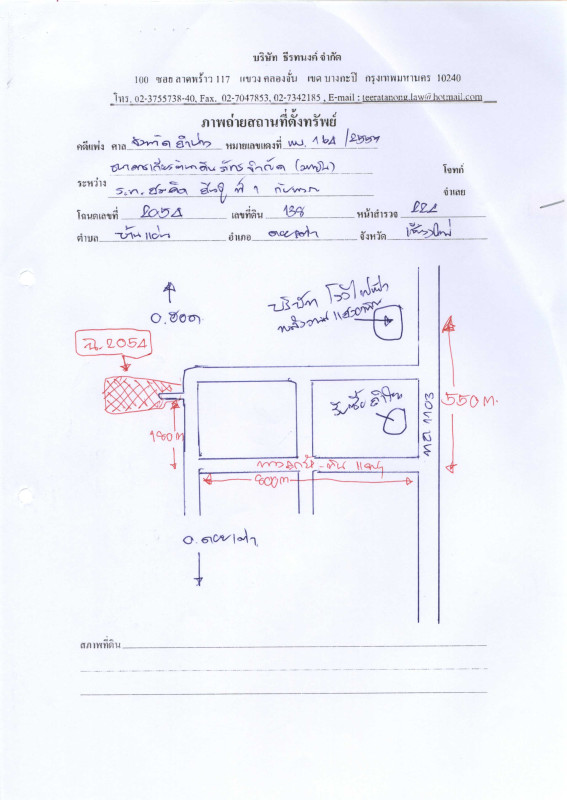 บริษัท ธีรทนงค์ จำกัด
100 ซอย ลาดพร้าว 117 แขวง คลองจั่น เขต บางกะปิ กรุงเทพมหานคร 10240
โทร. 02-3755738-40, Fax. 02-7047853, 02-7342185 , E-mail : teeratanong.law@hotmail.com
ภาพถ่ายสถานที่ตั้งทรัพย์
คดีแพ่ง ศาล หมายเลขแดงที่
ธนาคารเกียรตินาคินภัทร จำกัด (มหาชน) โจทก์
ระหว่าง
ที่ 1 กับพวก จำเลย
โฉนดเลขที่ 2054 เลขที่ดิน 138 หน้าสำรวจ 224
ตำบล บ้านแอ่น อำเภอ ดอยเต่า จังหวัด เชียงใหม่
บริษัท โรงไฟฟ้า
พลังงานแสงอาทิตย์
อ.ฮอด
ฉ.2054
550 m.
ทล 1103
รับซื้อลำไย
180 m
บ้านแอ่น
800 m
อ.ดอยเต่า
สภาพที่ดิน